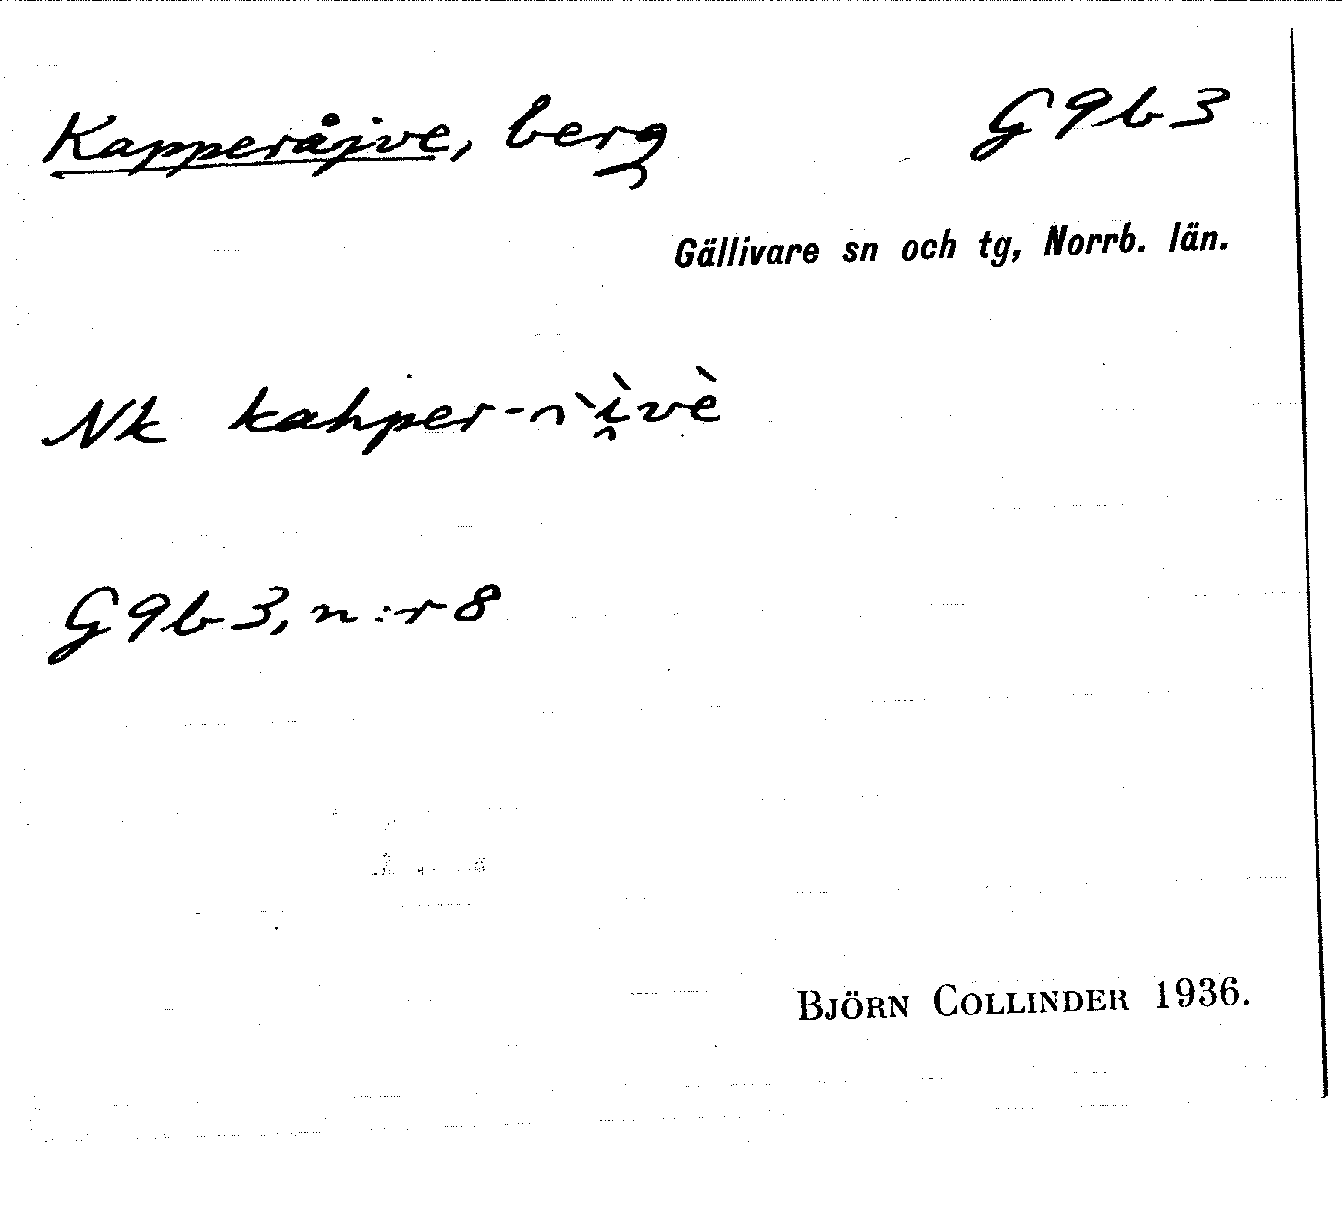 Kapperåjve, berg
G9b3
Gällivare sn och tg, Norrb. län.
Nk kahper-
G9b3, n:r 8
BJÖRN COLLINDER 1936.